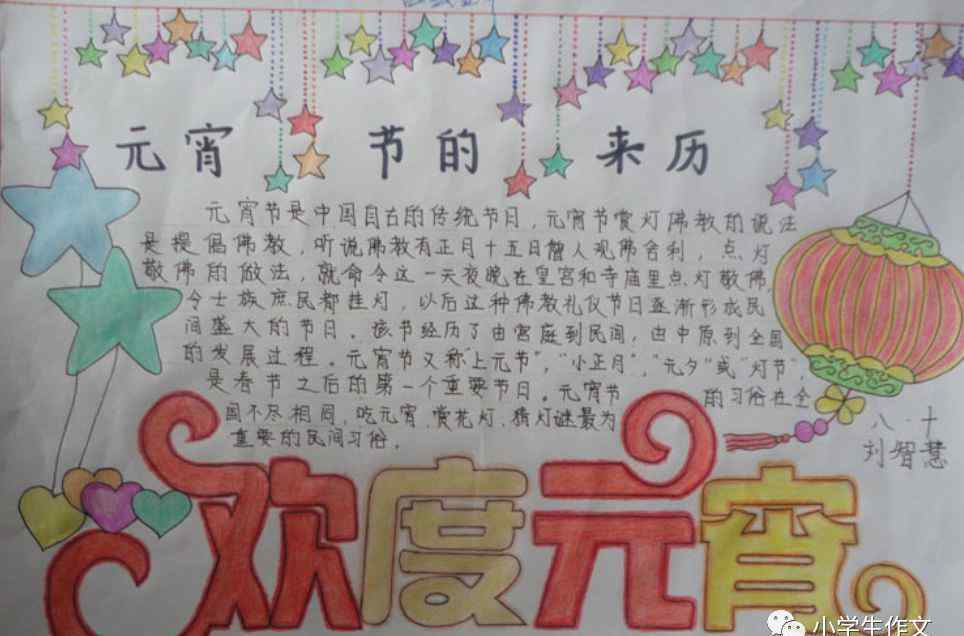 元宵节的来历
元宵节是中国自古的传统节日，元宵节赏灯佛教的说法
是提倡佛教，听说佛教有正月十五日僧人观佛舍利，点灯
敬佛的做法，就命令这一天夜晚在皇宫和寺庙里点灯敬佛
令士族庶民都挂灯，以后这种佛教礼仪节日逐渐形成民
间盛大的节日。该节经历了由宫庭到民间，由中原到全国
的发展过程。元宵节又称上元节”，“小正月”，“元夕”或“灯节”，
是春节之后的第一个重要节日。元宵节 的习俗在全
国不尽相同，吃元宵、赏花灯、猜灯谜最为
重要的民间习俗。
八·十
刘智慧
欢度元宵
小学生作文